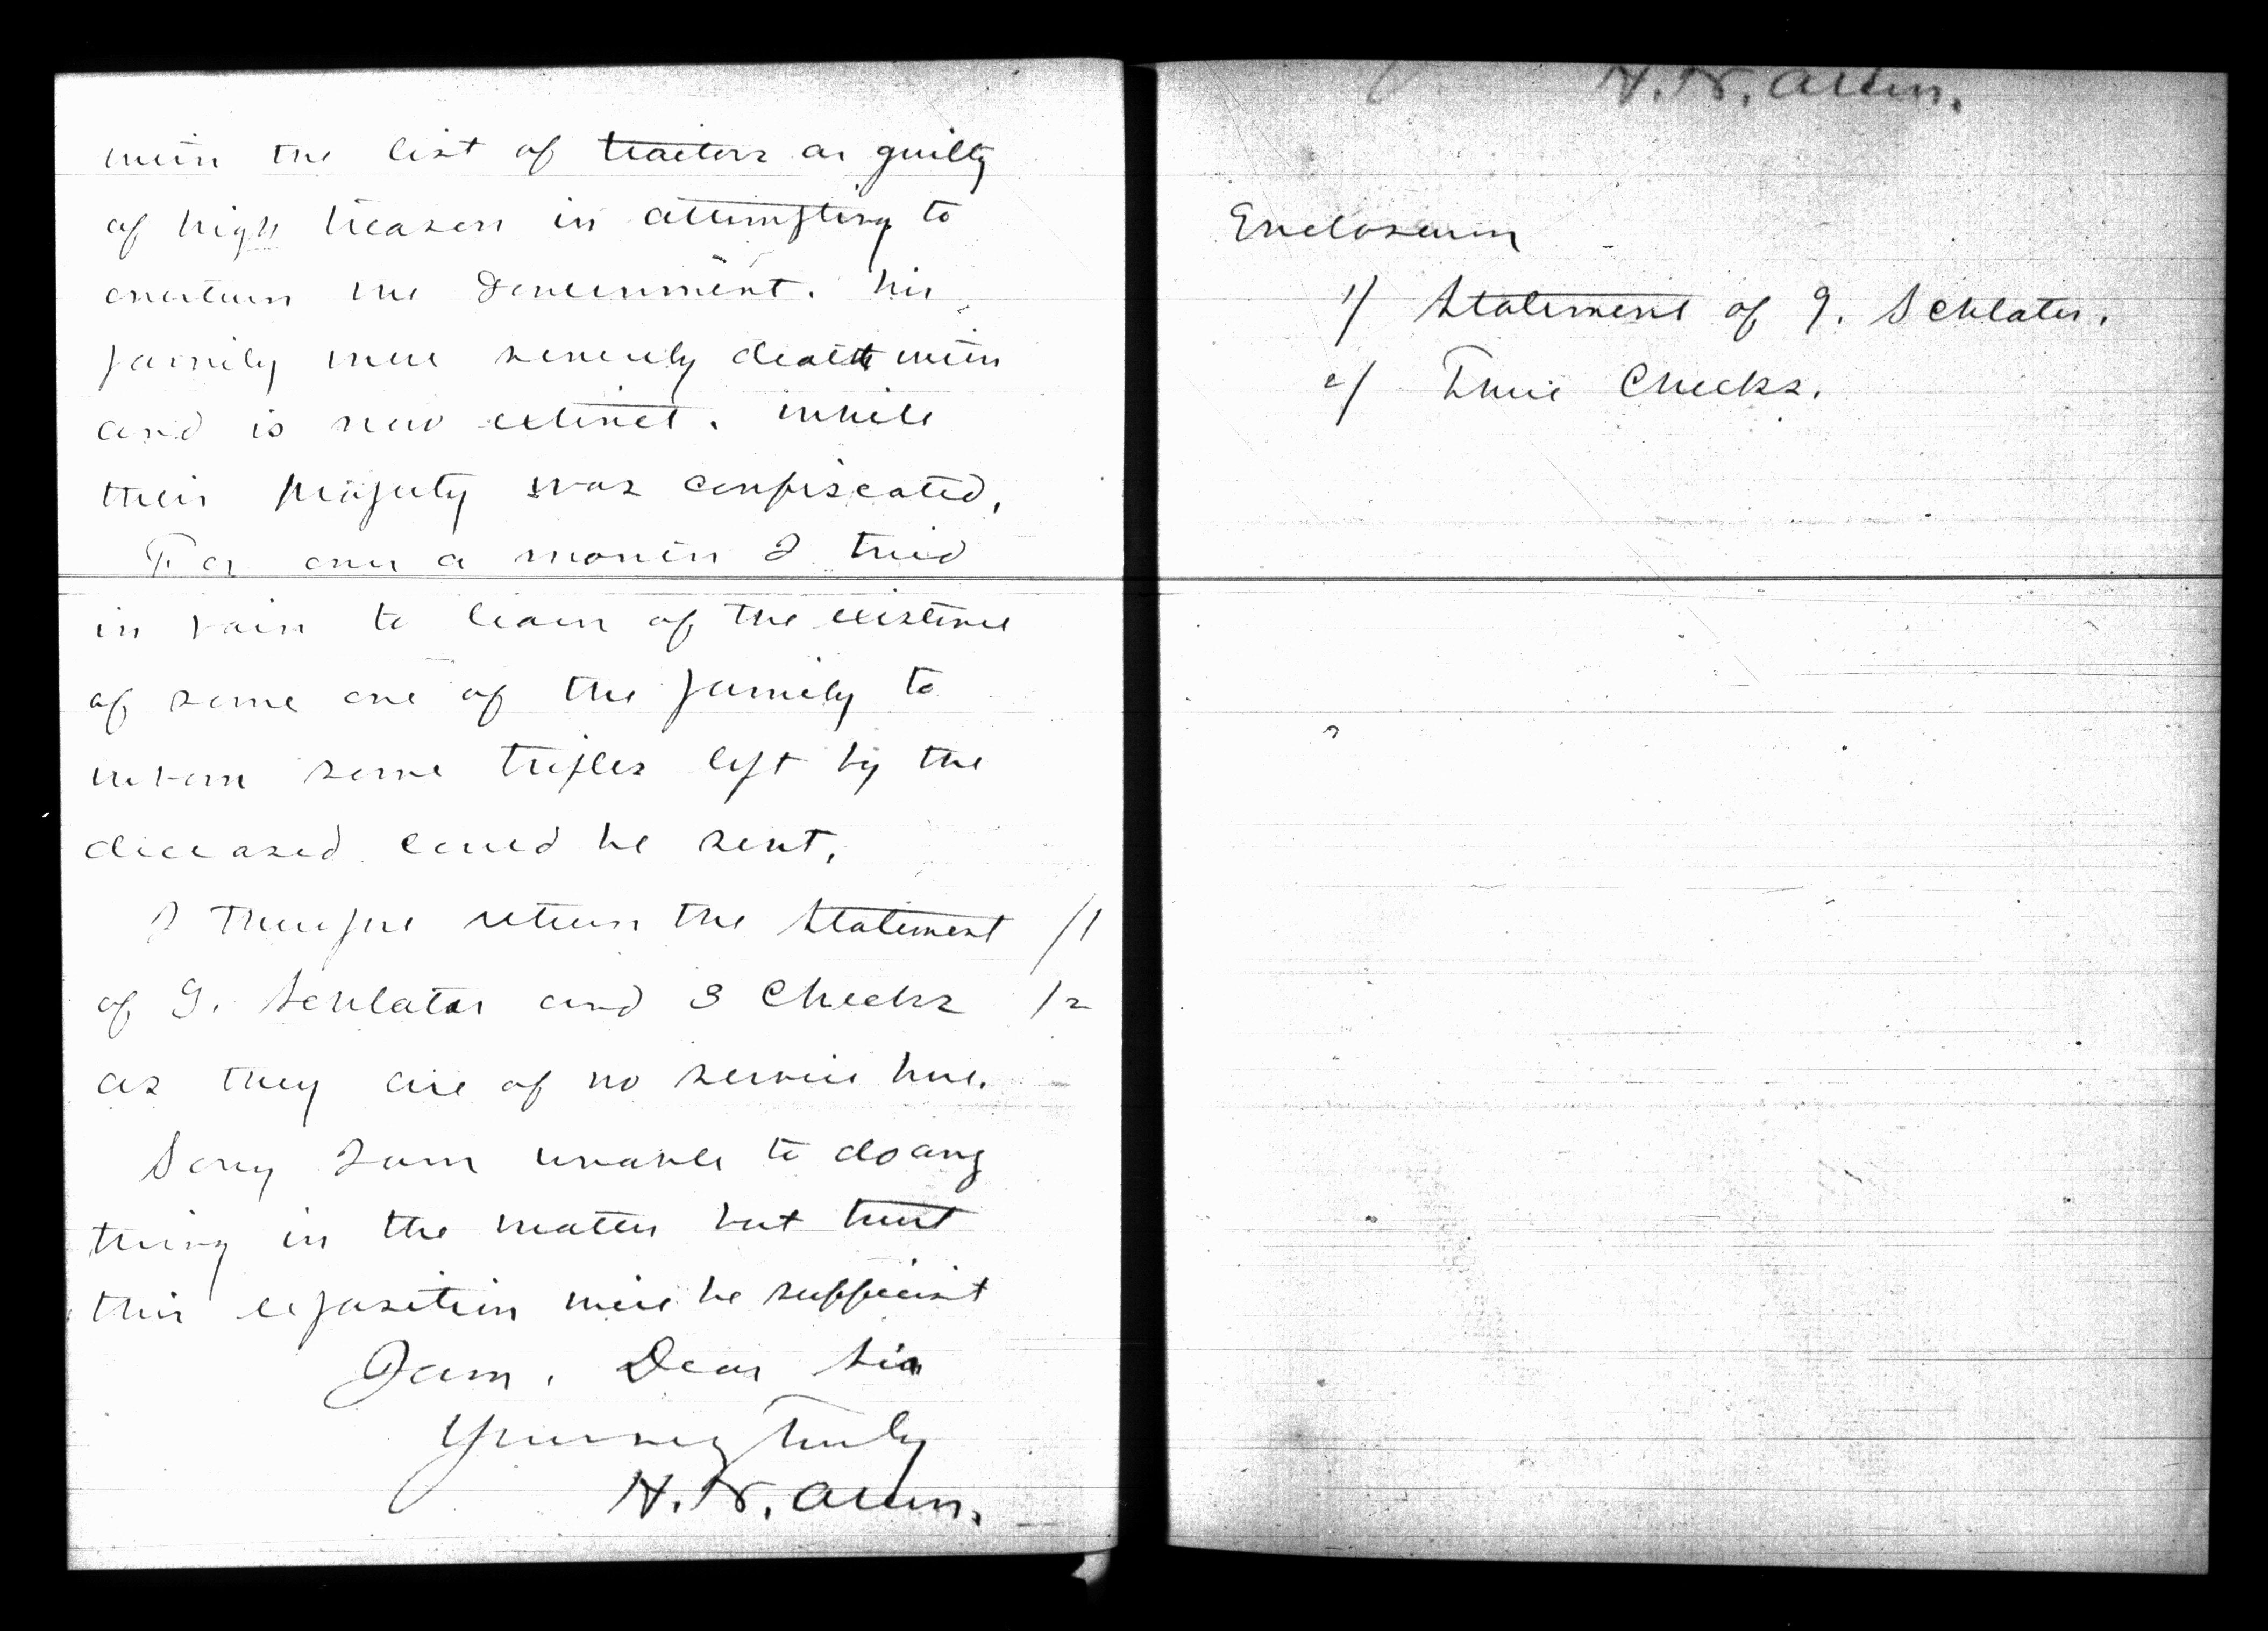 with the list of traitors as guilty
of high treason in attempting to
overturn the Government. his
family were severely dealt with
and is now extinct. while
their property was confiscated,
For over a month I tried
in vain to learn of the existence
of some one of the family to
whom some trifles left by the
deceased could be sent,
I therefore return the Statement /1
of G. Schlater and 3 Checks /2
as they are of no service here.
Sorry I am unable to do any
thing in the matter but trust
this exposition will be sufficient
I am, Dear Sir
Yours very truly
H. N. Allen.
H. N. Allen.
Enclosures
1/ Statement of G. Schlater.
2/ Three Checks.